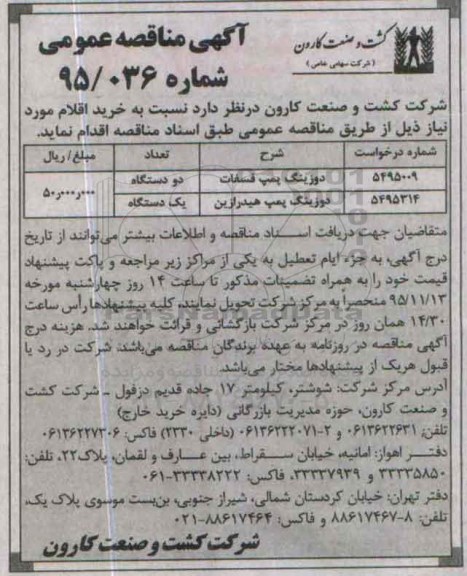 کشت و صنعت کارون
(شرکت سهامی خاص)
آگهی مناقصه عمومی
شماره ۹۵/۰۳۶
شرکت کشت و صنعت کارون درنظر دارد نسبت به خرید اقلام مورد
نیاز ذیل از طریق مناقصه عمومی طبق اسناد مناقصه اقدام نماید.
شماره درخواست شرح تعداد مبلغ/ ریال
۵۴۹۵۰۰۹ دوزینگ پمپ فسفات دو دستگاه ۵۰ر۰۰۰ر۰۰۰
۵۴۹۵۳۱۴ دوزینگ پمپ هیدرازین یک دستگاه
متقاضیان جهت دریافت اسناد مناقصه و اطلاعات بیشتر می‌توانند از تاریخ
درج آگهی، به جزء ایام تعطیل به یکی از مراکز زیر مراجعه و پاکت پیشنهاد
قیمت خود را به همراه تضمینات مذکور تا ساعت ۱۴ روز چهارشنبه مورخه
۹۵/۱۱/۱۳ منحصراً به مرکز شرکت تحویل نمایند. کلیه پیشنهادها رأس ساعت
۱۴/۳۰ همان روز در مرکز شرکت بازگشائی و قرائت خواهند شد. هزینه درج
آگهی مناقصه در روزنامه به عهده برندگان مناقصه می‌باشد. شرکت در رد یا
قبول هریک از پیشنهادها مختار می‌باشد.
آدرس مرکز شرکت: شوشتر، کیلومتر ۱۷ جاده قدیم دزفول ـ شرکت کشت
و صنعت کارون، حوزه مدیریت بازرگانی (دایره خرید خارج)
تلفن: ۰۶۱۳۶۲۲۶۳۱ و ۲-۰۶۱۳۶۲۲۲۰۷۱ (داخلی ۲۳۳۰) فاکس: ۰۶۱۳۶۲۲۷۳۰۶
دفتر اهواز: امانیه، خیابان سقراط، بین عارف و لقمان، پلاک۲۲، تلفن:
۳۳۳۳۵۸۵۰ و ۳۳۳۳۷۹۳۹، فاکس: ۳۳۳۳۸۲۲۲-۰۶۱
دفتر تهران: خیابان کردستان شمالی، شیراز جنوبی، بن‌بست موسوی پلاک یک،
تلفن: ۸-۸۸۶۱۷۴۶۷ و فاکس: ۸۸۶۱۷۴۶۴-۰۲۱
شرکت کشت و صنعت کارون